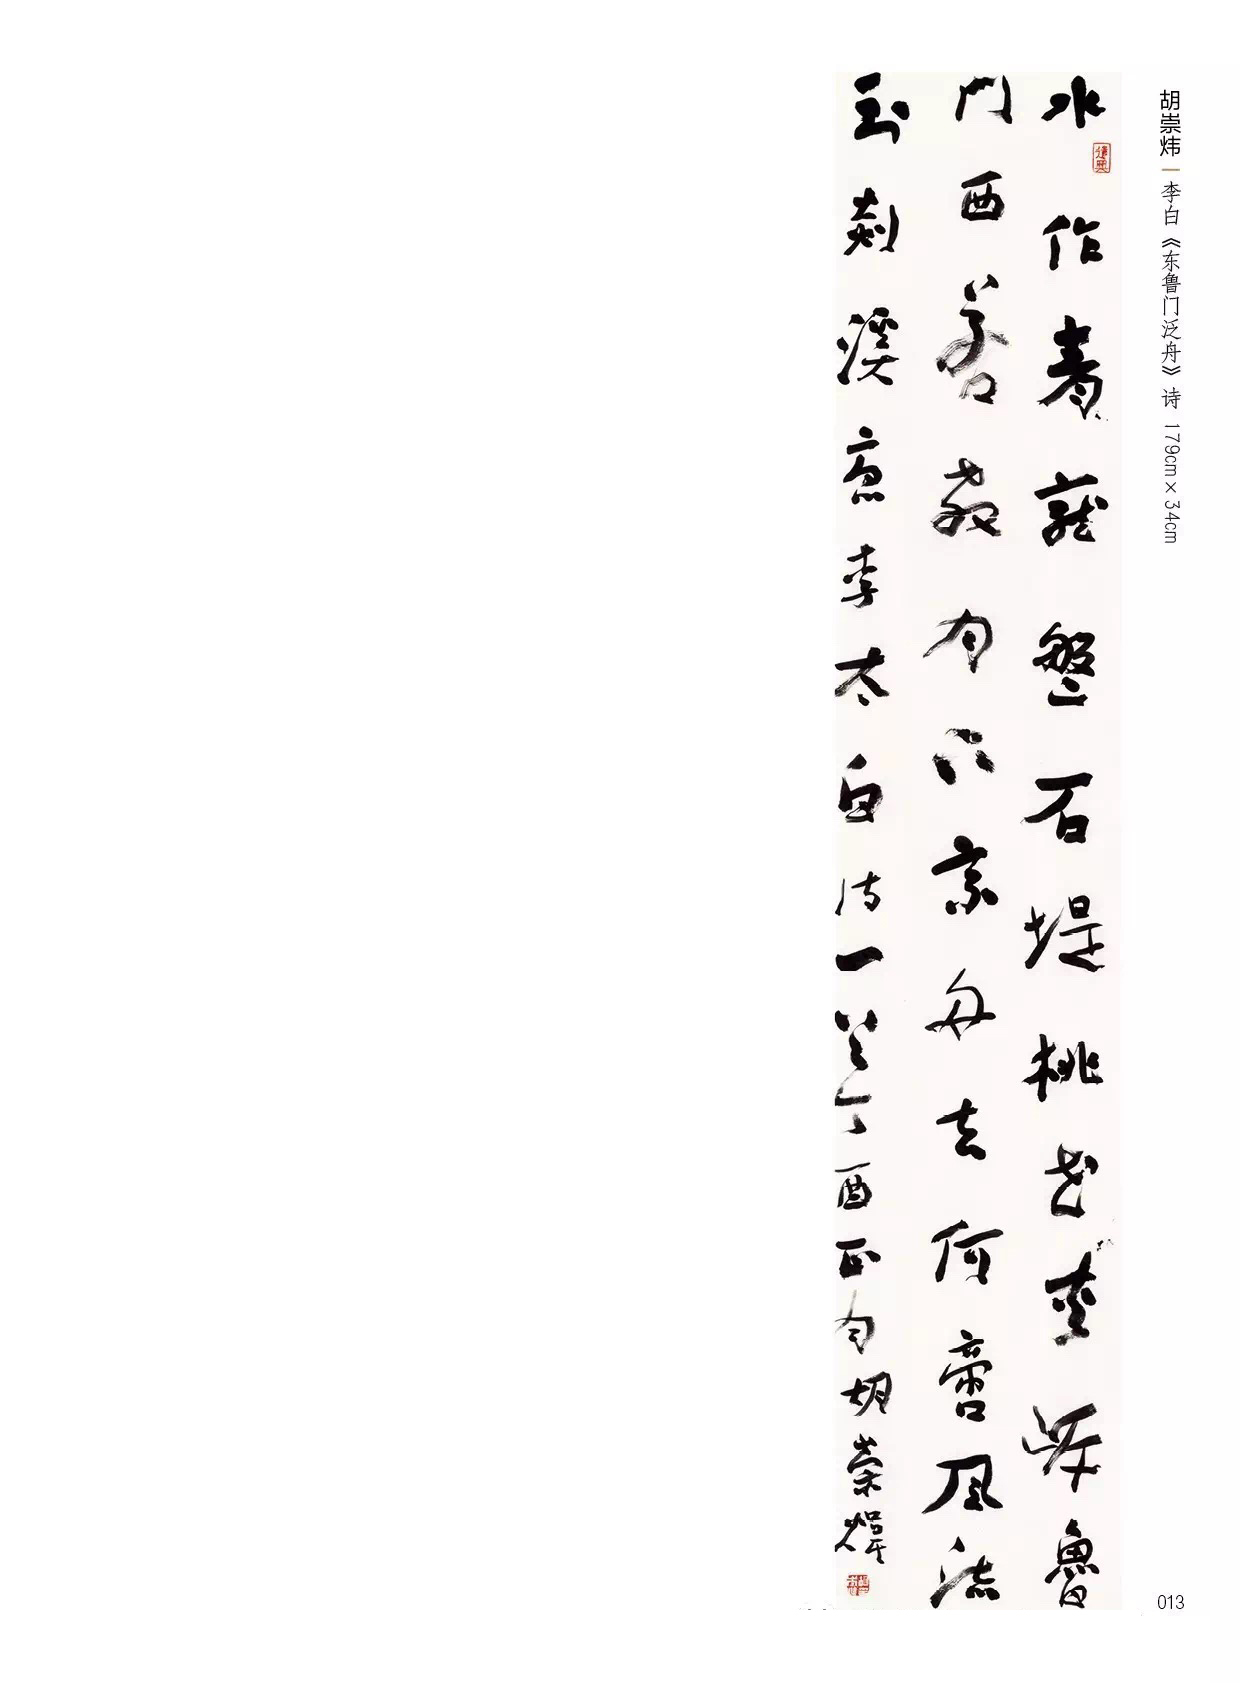 胡崇炜 | 李白《东鲁门泛舟》诗 179cm×34cm
水作青龍盤石堤桃花夾岸魯
門西若教月下乘舟去何啻風流
到剡溪李太白诗一首丁酉正月胡崇煒
013